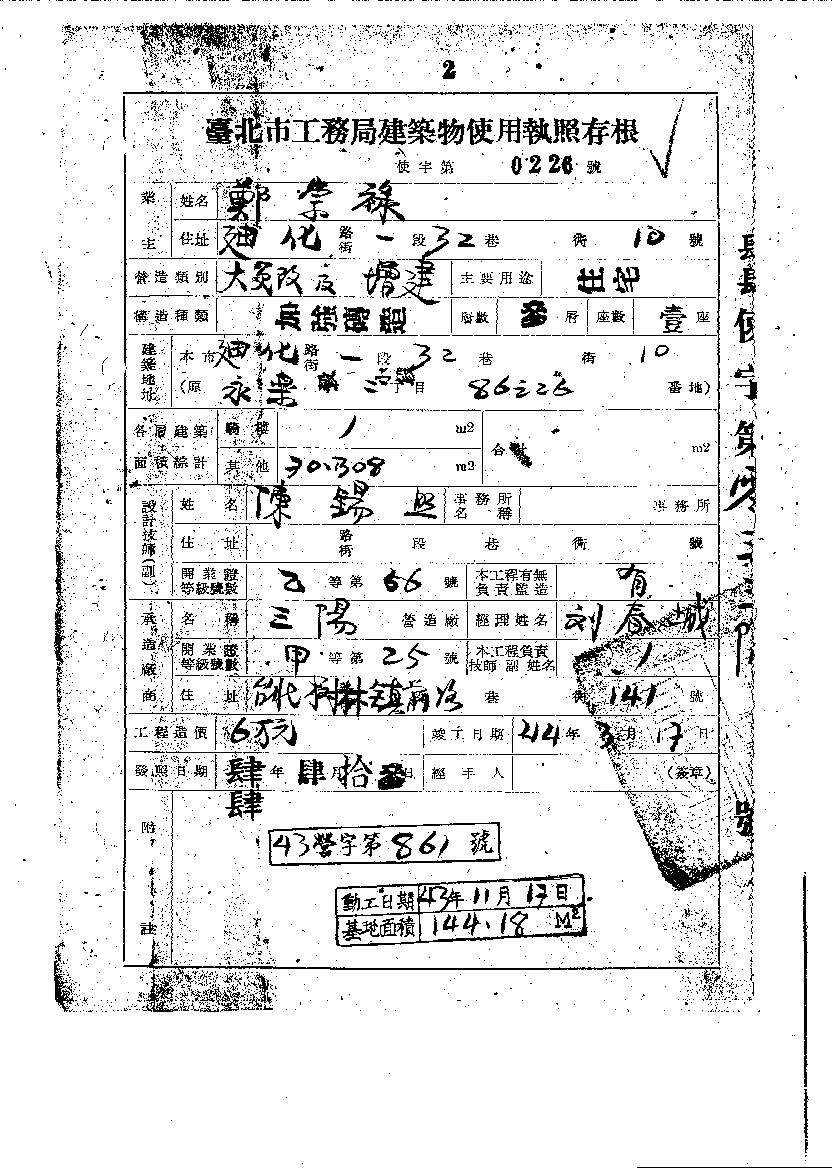 2
臺北市工務局建築物使用執照存根
使字第 0226 號
業主 姓名 鄭崇祿
住址 廸化 路街 一 段 32 巷 衖 10 號
營造類別 增建 主要用途 住宅
構造種類 加強磚造 階數 層 座數 壹 座
建築地址 本市 廸化 路街 一 段 32 巷 衖 10
(原 永樂 三 丁目 86之26 番地)
各層建築面積綜計 騎樓 / m2 合計 m2
其他 30.308 m2
設計技師(副) 姓名 陳錫 事務所名稱 事務所
住址 路街 段 巷 衖 號
開業證等級號數 乙 等第 56 號 本工程有無負責監造 有
承造廠商 名稱 三陽 營造廠 經理姓名 刘春城
開業證等級號數 甲 等第 25 號 本工程負責技師副姓名 /
住址 台北樹林鎮 巷 衖 141 號
工程造價 6万元 竣工日期 44年3月17日
發照日期 肆肆 年 肆 月 拾 日 經手人 (簽章)
附註
43營字第861號
動工日期 43年11月17日
基地面積 144.18 M2
肆肆使字第零 號